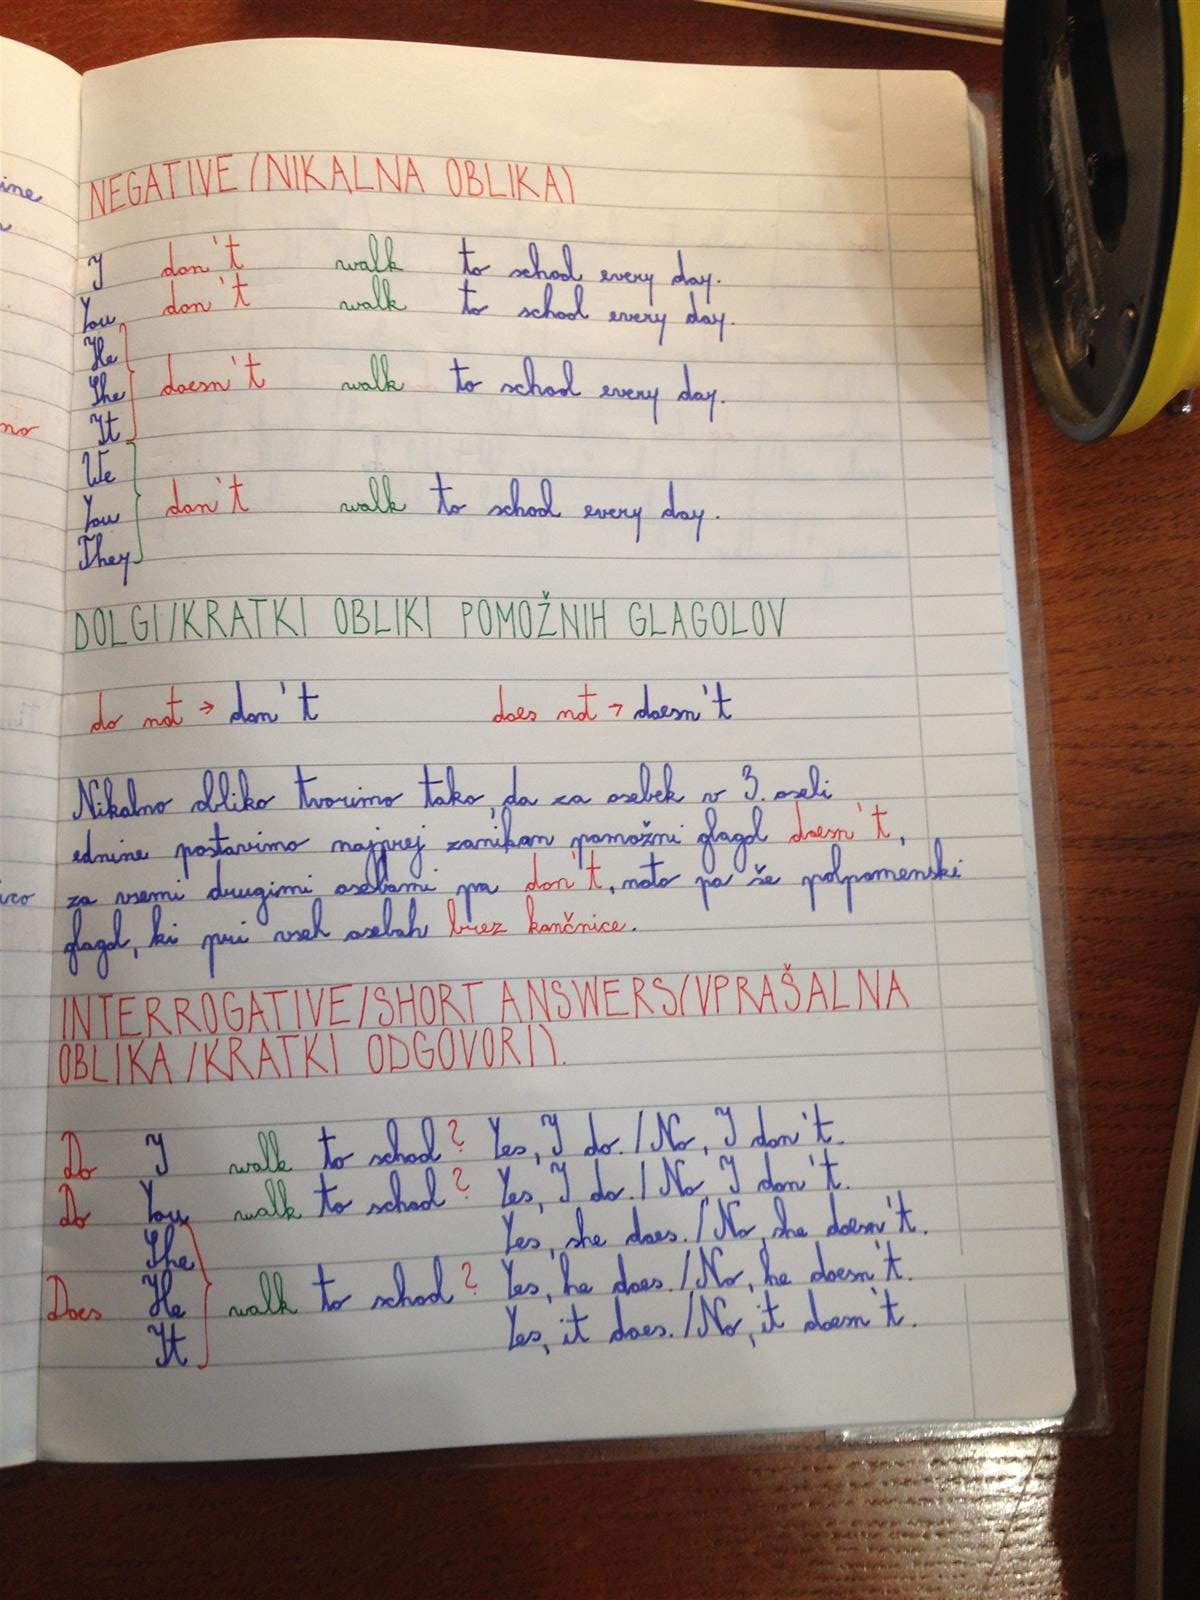 ine
no
ico
NEGATIVE (NIKALNA OBLIKA)
I don't walk to school every day.
You don't walk to school every day.
He
She doesn't walk to school every day.
It
We
You don't walk to school every day.
They
DOLGI/KRATKI OBLIKI POMOŽNIH GLAGOLOV
do not → don't does not → doesn't
Nikalno obliko tvorimo tako, da za osebek v 3. osebi
ednine postavimo najprej zanikan pomožni glagol doesn't,
za vsemi drugimi osebami pa don't, nato pa še polpomenski
glagol, ki pri vseh osebah brez končnice.
INTERROGATIVE/SHORT ANSWERS(VPRAŠALNA
OBLIKA/KRATKI ODGOVORI).
Do I walk to school? Yes, I do. / No, I don't.
Do You walk to school? Yes, I do. / No, I don't.
She Yes, she does. / No, she doesn't.
Does He walk to school? Yes, he does. / No, he doesn't.
It Yes, it does. / No, it doesn't.